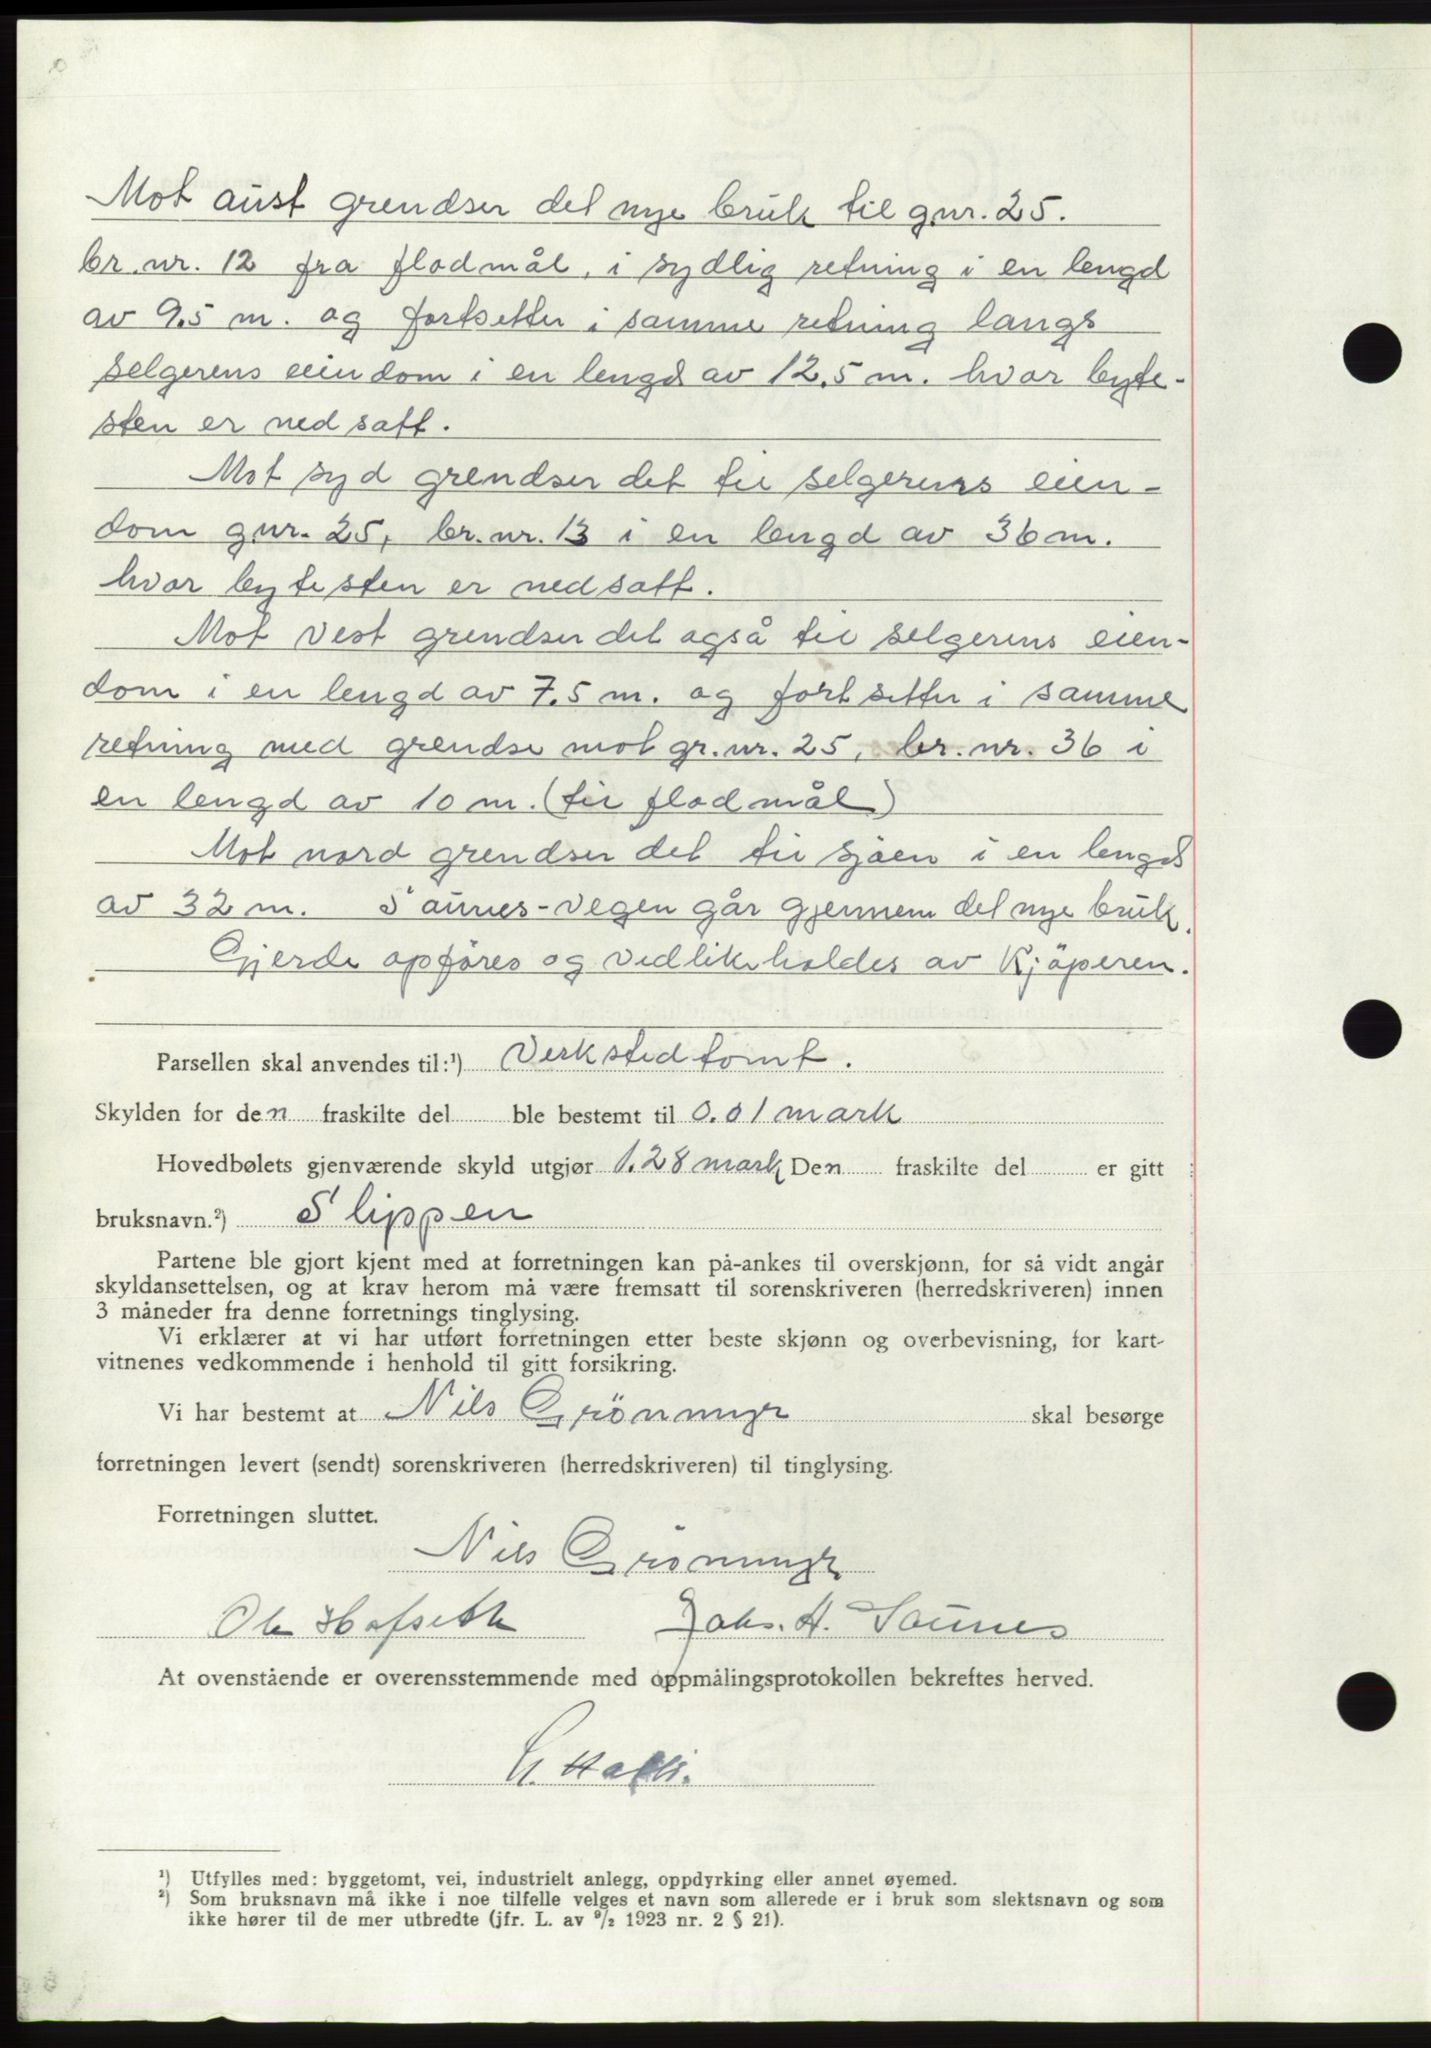 Mot aust grendser det nye bruk til gnr. 25.
br. nr. 12 fra flodmål, i sydlig retning i en lengd
av 9.5 m. og fortsetter i samme retning langs
selgerens eiendom i en lengd av 12.5 m. hvor byte-
sten er nedsatt.
Mot syd grendser det til selgerens eien-
dom gnr. 25, br. nr. 13 i en lengd av 36 m.
hvor bytesten er nedsatt.
Mot vest grendser det også til selgerens eien-
dom i en lengd av 7.5 m. og fortsetter i samme
retning med grendse mot gr. nr. 25, br. nr. 36 i
en lengd av 10 m. (til flodmål)
Mot nord grendser det til sjøen i en lengd
av 32 m. Saunes-vegen går gjennem det nye bruk.
Gjerde opføres og vedlikeholdes av Kjöperen.
Parsellen skal anvendes til:¹) Verkstedtomt.
Skylden for den fraskilte del ble bestemt til 0.01 mark
Hovedbølets gjenværende skyld utgjør 1.28 mark Den fraskilte del er gitt
bruksnavn.²) Slippen
Partene ble gjort kjent med at forretningen kan på-ankes til overskjønn, for så vidt angår
skyldansettelsen, og at krav herom må være fremsatt til sorenskriveren (herredskriveren) innen
3 måneder fra denne forretnings tinglysing.
Vi erklærer at vi har utført forretningen etter beste skjønn og overbevisning, for kart-
vitnenes vedkommende i henhold til gitt forsikring.
Vi har bestemt at Nils Grönmyr skal besørge
forretningen levert (sendt) sorenskriveren (herredskriveren) til tinglysing.
Forretningen sluttet.
Nils Grönmyr
Ole Hofseth Johs. A. Saunes
At ovenstående er overensstemmende med oppmålingsprotokollen bekreftes herved.
¹) Utfylles med: byggetomt, vei, industrielt anlegg, oppdyrking eller annet øyemed.
²) Som bruksnavn må ikke i noe tilfelle velges et navn som allerede er i bruk som slektsnavn og som
ikke hører til de mer utbredte (jfr. L. av ⁹/₂ 1923 nr. 2 § 21).